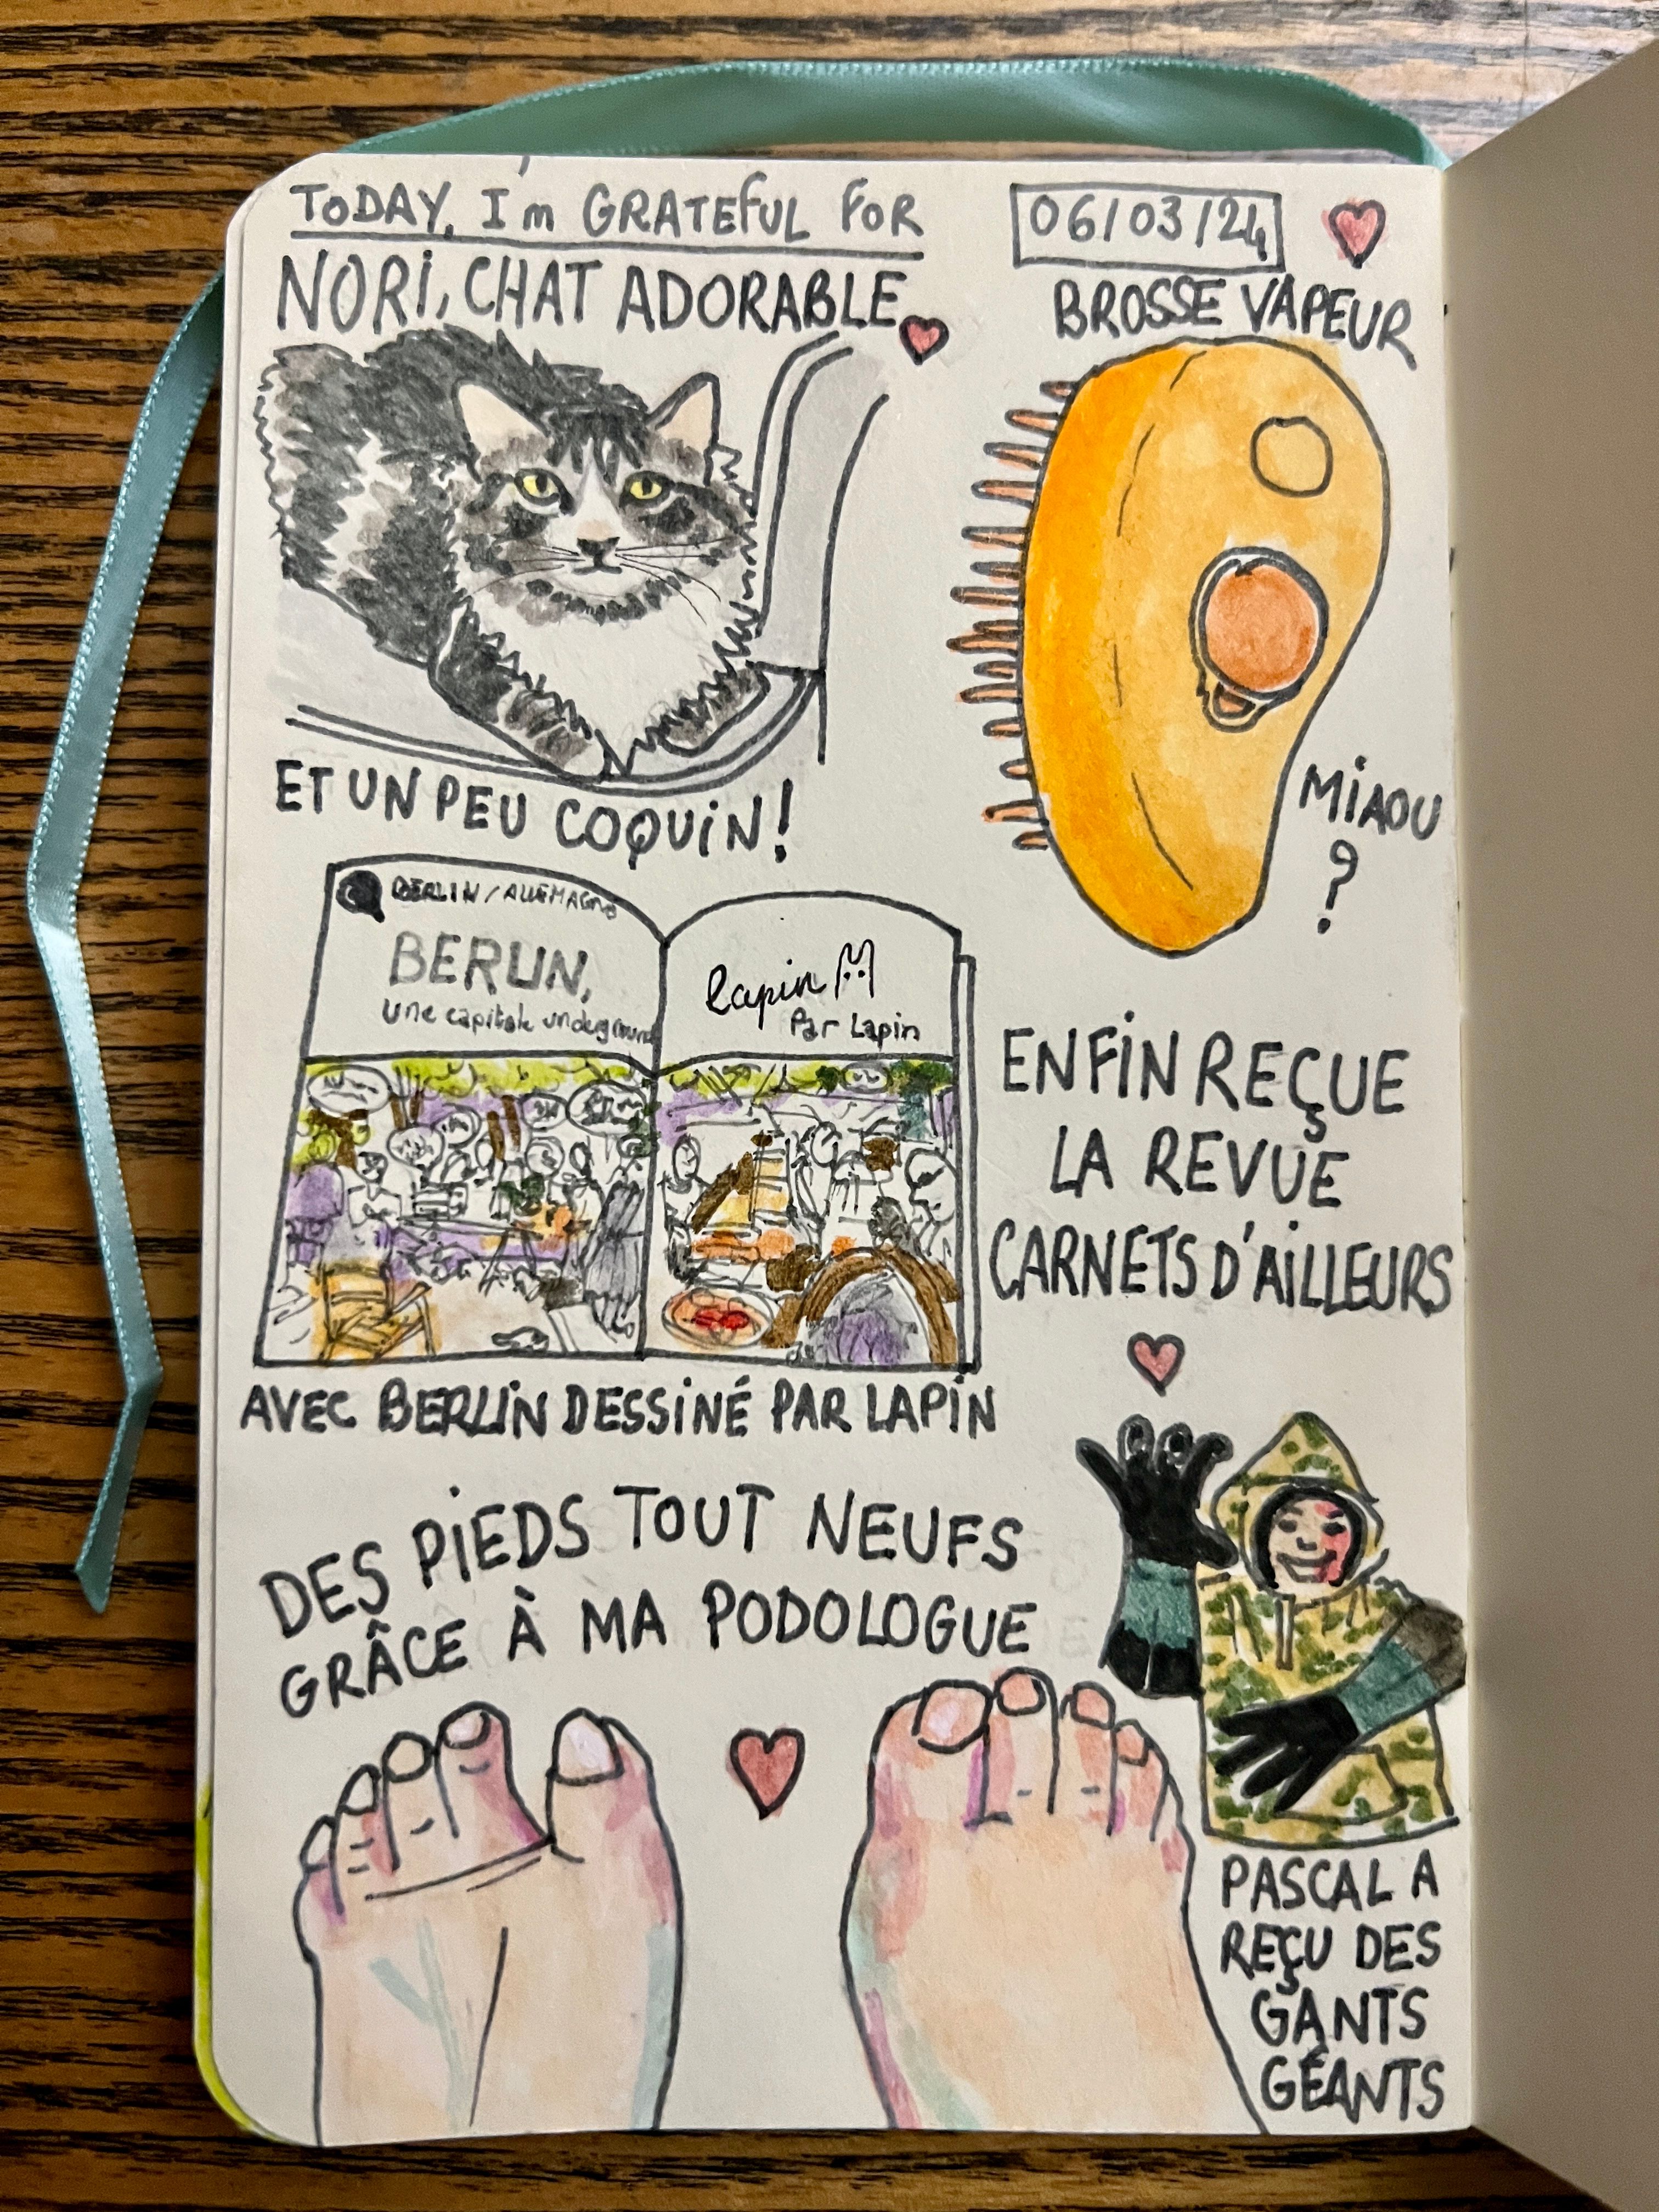 TODAY, I'm GRATEFUL FOR
06/03/24
NORI, CHAT ADORABLE
BROSSE VAPEUR
ET UN PEU COQUIN!
MIAOU
?
BERLIN/ALLEMAGNE
BERLIN,
Une capitale underground
lapin
Par Lapin
ENFIN REÇUE
LA REVUE
CARNETS D'AILLEURS
AVEC BERLIN DESSINÉ PAR LAPIN
DES PIEDS TOUT NEUFS
GRÂCE À MA PODOLOGUE
PASCAL A
REÇU DES
GANTS
GÉANTS